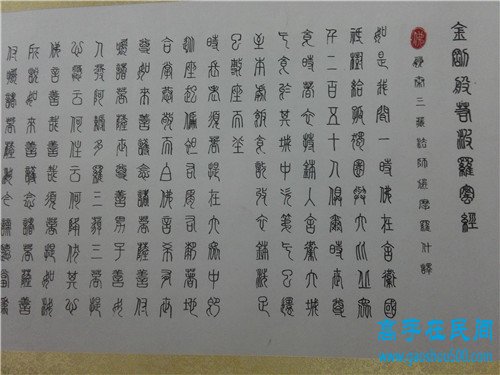 金剛般若波羅蜜經
姚秦三藏法師鳩摩羅什譯
如是我聞一時佛在舍衛國
祇樹給孤獨園與大比丘眾
千二百五十人俱爾時世尊
食時著衣持鉢入舍衛大城
乞食於其城中次第乞已還
至本處飯食訖收衣鉢洗足
已敷座而坐
時長老須菩提在大眾中即
從座起偏袒右肩右膝著地
合掌恭敬而白佛言希有世
尊如來善護念諸菩薩善付
囑諸菩薩世尊善男子善女
人發阿耨多羅三藐三菩提
心應云何住云何降伏其心
佛言善哉善哉須菩提如汝
所說如來善護念諸菩薩善
付囑諸菩薩汝今諦聽當為
高手在民间